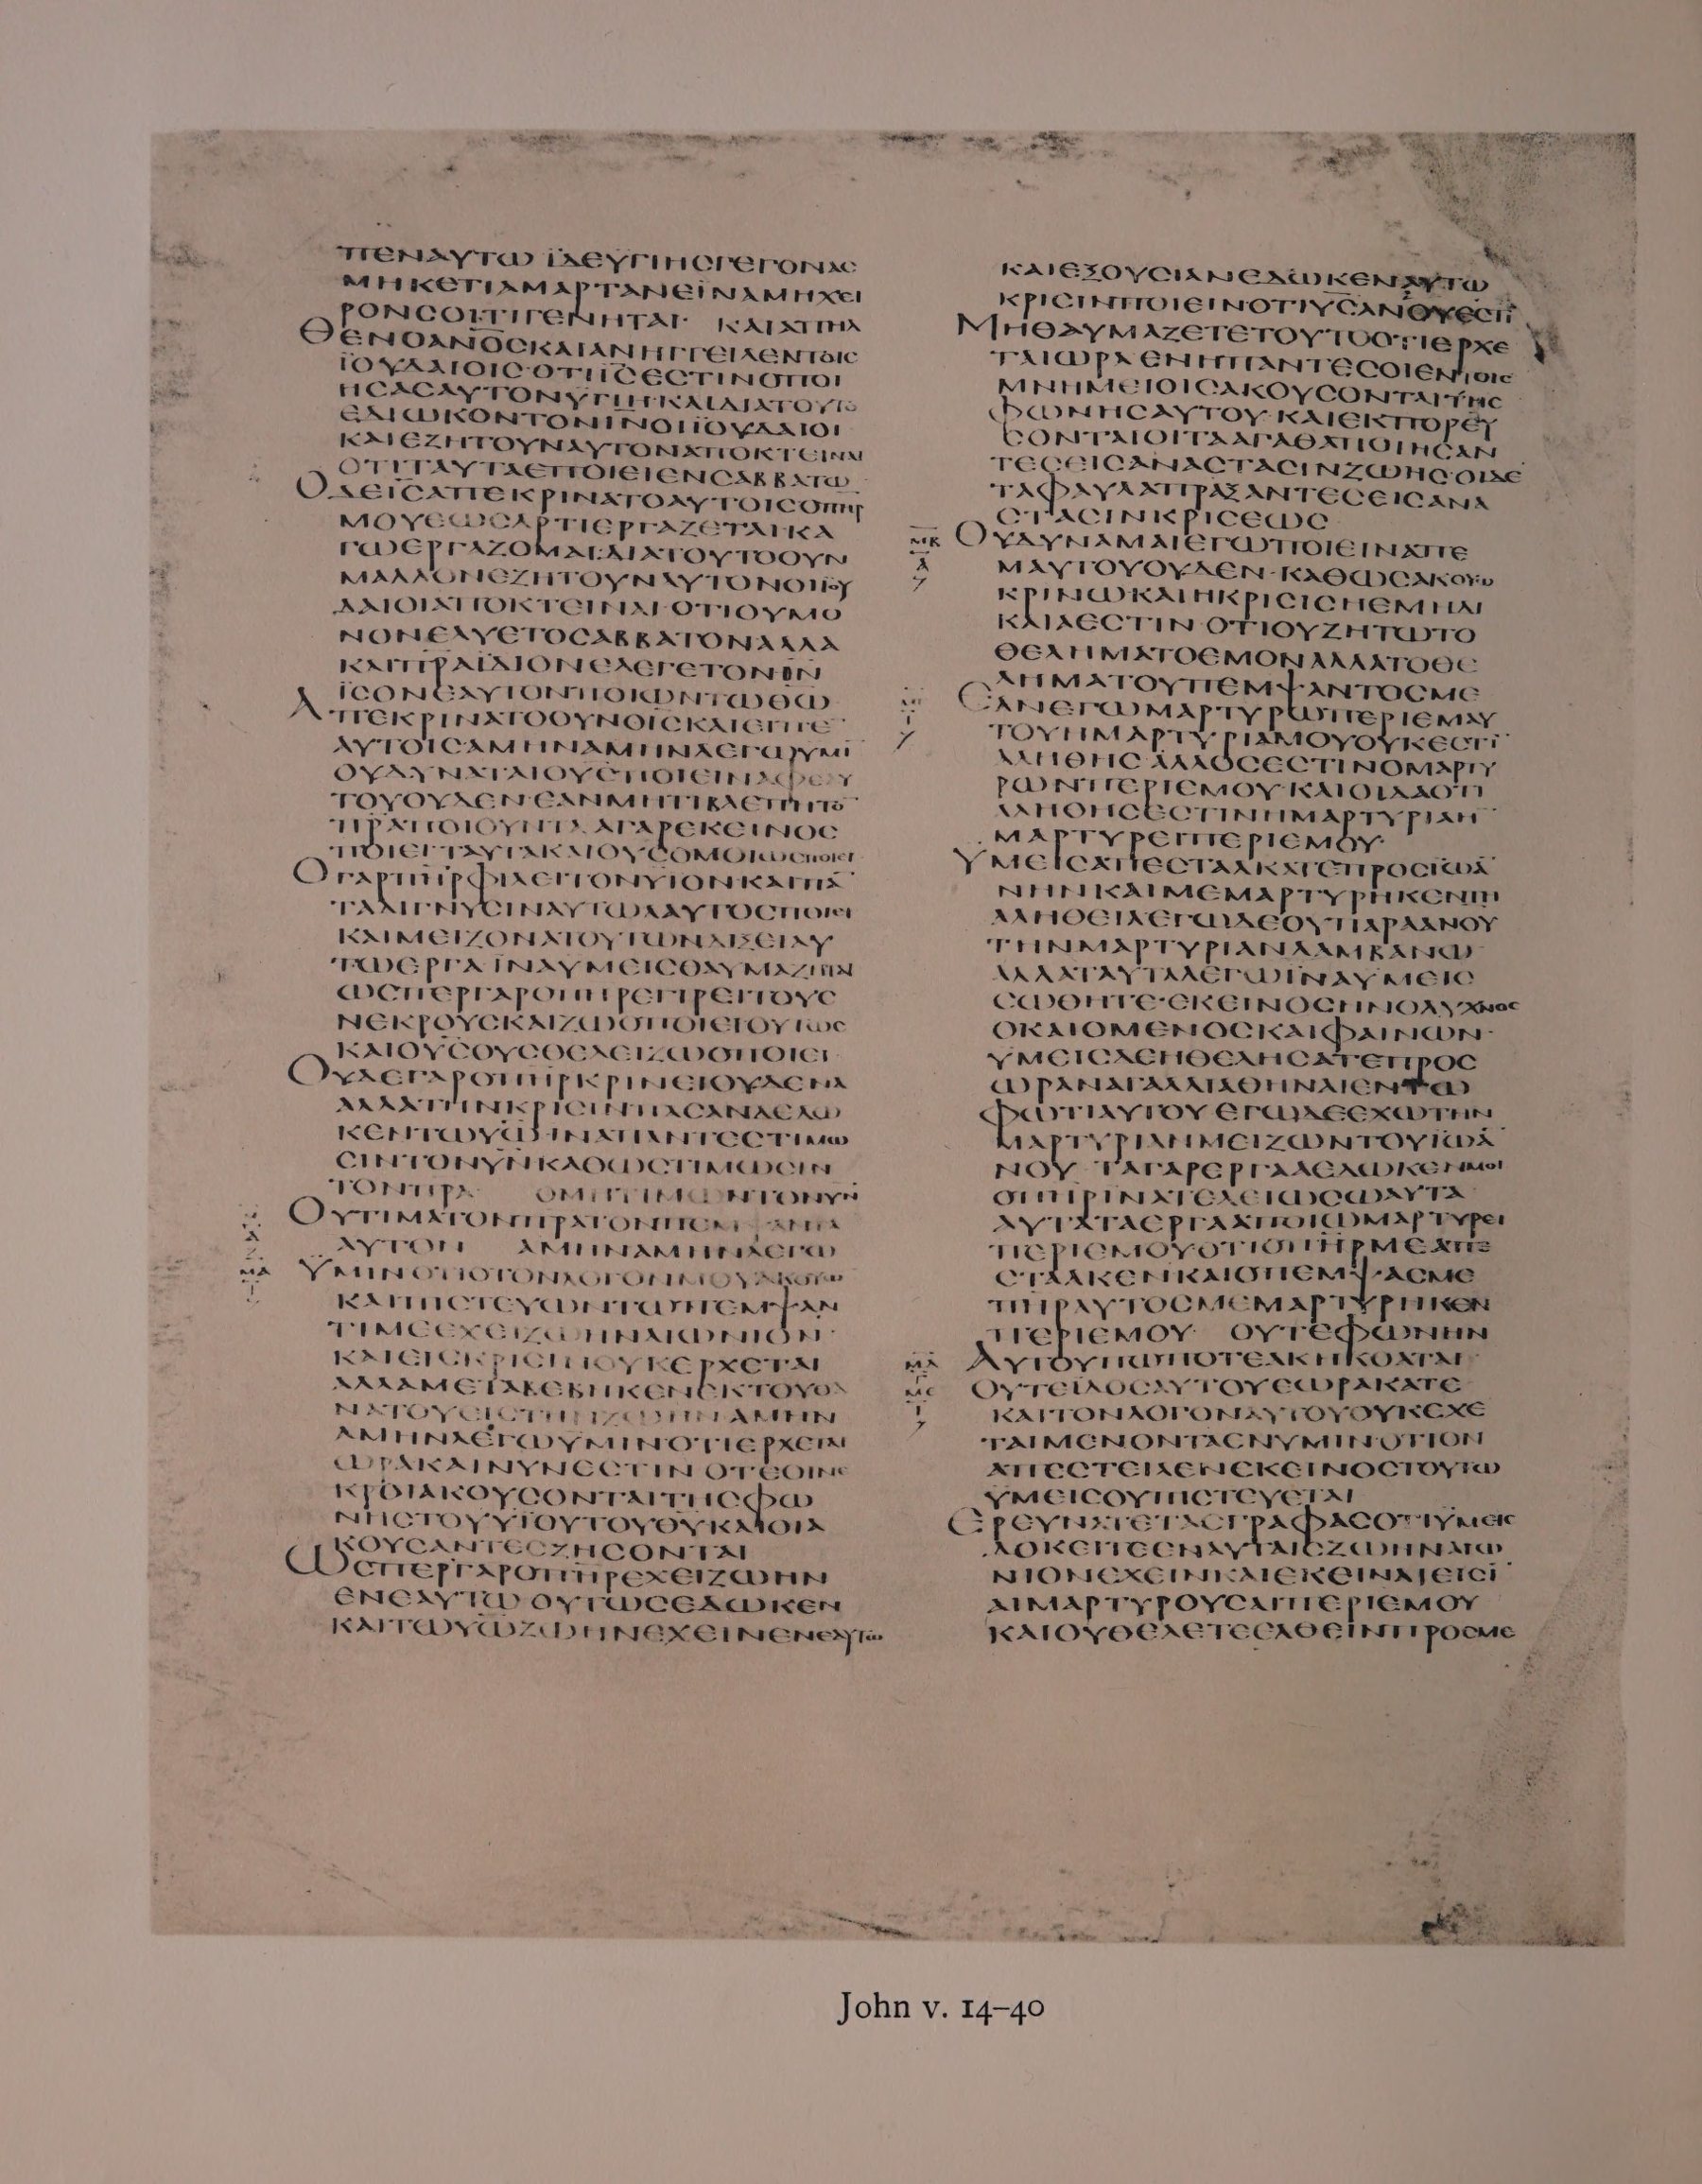 ΠΕΝΑΥΤΩ ΪΔΕΥΓΙΗϹΓΕΓΟΝΑϹ
ΜΗΚΕΤΙΑΜΑΡΤΑΝΕΪΝΑΜΗΧΕΙ
ΡΟΝϹΟΙΤΙΓΕΝΗΤΑΙ· ΚΑΙΑΠΗΛ
ΘΕΝΟΑΝΟϹΚΑΙΑΝΗΓΓΕΙΛΕΝΤΟΙϹ
ΪΟΥΔΑΙΟΙϹ·ΟΤΙΙϹΕϹΤΙΝΟΠΟΙ
ΗϹΑϹΑΥΤΟΝΥΓΙΗ·ΚΑΙΔΙΑΤΟΥΤΟ
ΕΔΙΩΚΟΝΤΟΝΙΝΟΙΪΟΥΔΑΙΟΙ
ΚΑΙΕΖΗΤΟΥΝΑΥΤΟΝΑΠΟΚΤΕΙΝΑΙ
ΟΤΙΤΑΥΤΑΕΠΟΙΕΙΕΝϹΑΒΒΑΤΩ
ΟΔΕΙϹΑΠΕΚΡΙΝΑΤΟΑΥΤΟΙϹΟΠΗΡ
ΜΟΥΕΩϹΑΡΤΙΕΡΓΑΖΕΤΑΙΚΑ
ΓΩΕΡΓΑΖΟΜΑΙ·ΔΙΑΤΟΥΤΟΟΥΝ
ΜΑΛΛΟΝΕΖΗΤΟΥΝΑΥΤΟΝΟΙΪΟΥ
ΔΑΙΟΙΑΠΟΚΤΕΙΝΑΙ·ΟΤΙΟΥΜΟ
ΝΟΝΕΛΥΕΤΟϹΑΒΒΑΤΟΝΑΛΛΑ
ΚΑΙΠΡΑΪΔΙΟΝΕΛΕΓΕΤΟΝΘΝ
ΪϹΟΝΕΑΥΤΟΝΠΟΙΩΝΤΩΘΩ
ΑΠΕΚΡΙΝΑΤΟΟΥΝΟΙϹΚΑΙΕΙΠΕ
ΑΥΤΟΙϹΑΜΗΝΑΜΗΝΛΕΓΩΥΜΙ
ΟΥΔΥΝΑΤΑΙΟΥϹΠΟΙΕΙΝΑΦΕΑΥ
ΤΟΥΟΥΔΕΝ·ΕΑΝΜΗΤΙΒΛΕΠΗΤΟ
ΠΡΑΠΟΙΟΥΝΤΑ·ΑΓΑΡΕΚΕΙΝΟϹ
ΠΟΙΕΙ·ΤΑΥΤΑΚΑΙΟΥϹΟΜΟΙΩϹΠΟΙΕΙ
ΟΓΑΡΠΗΡΦΙΛΕΙΤΟΝΥΙΟΝΚΑΙΠΑ
ΤΑΔΙΓΝΥϹΙΝΑΥΤΩΑΑΥΤΟϹΠΟΙΕΙ
ΚΑΙΜΕΙΖΟΝΑΤΟΥΤΩΝΔΙΞΕΙΑΥ
ΤΩΕΡΓΑΪΝΑΥΜΕΙϹΘΑΥΜΑΖΗΤΑΙ
ΩϹΠΕΡΓΑΡΟΠΗΡΕΓΙΡΕΙΤΟΥϹ
ΝΕΚΡΟΥϹΚΑΙΖΩΟΠΟΙΕΙΟΥΤΩϹ
ΚΑΙΟΥϹΟΥϹΘΕΛΕΙΖΩΟΠΟΙΕΙ
ΟΥΔΕΓΑΡΟΠΗΡΚΡΙΝΕΙΟΥΔΕΝΑ
ΑΛΛΑΤΗΝΚΡΙϹΙΝΠΑϹΑΝΔΕΔΩ
ΚΕΝΤΩΥΩ·ΙΝΑΠΑΝΤΕϹΤΙΜΩ
ϹΙΝΤΟΝΥΝΚΑΘΩϹΤΙΜΩϹΙΝ
ΤΟΝΠΡΑ ΟΜΗΤΙΜΩΝΤΟΝΥΝ
ΟΥΤΙΜΑΤΟΝΠΡΑΤΟΝΠΕΜΨΑΝΤΑ
ΑΥΤΟΝ ΑΜΗΝΑΜΗΝΛΕΓΩ
ΥΜΙΝΟΤΙΟΤΟΝΛΟΓΟΝΜΟΥΑΚΟΥΩ
ΚΑΙΠΙϹΤΕΥΩΝΤΩΠΕΜΨΑΝ
ΤΙΜΕΕΧΕΙΖΩΗΝΑΙΩΝΙΟΝ·
ΚΑΙΕΙϹΚΡΙϹΙΝΟΥΚΕΡΧΕΤΑΙ
ΑΛΛΑΜΕΤΑΒΕΒΗΚΕΝΕΚΤΟΥΘΑ
ΝΑΤΟΥΕΙϹΤΗΝΖΩΗΝΑΜΗΝ
ΑΜΗΝΛΕΓΩΥΜΙΝΟΤΙΕΡΧΕΤΑΙ
ΩΡΑΚΑΙΝΥΝΕϹΤΙΝ ΟΤΕΟΙΝΕ
ΚΡΟΙΑΚΟΥϹΟΝΤΑΙΤΗϹΦΩ
ΝΗϹΤΟΥΥΪΟΥΤΟΥΘΥΚΑΙΟΙΑ
ΚΟΥϹΑΝΤΕϹΖΗϹΟΝΤΑΙ
ΩϹΠΕΡΓΑΡΟΠΗΡΕΧΕΙΖΩΗΝ
ΕΝΕΑΥΤΩ ΟΥΤΩϹΕΔΩΚΕΝ
ΚΑΙΤΩΥΩΖΩΗΝΕΧΕΙΝΕΝΕΑΥΤΩ
ΚΑΙΕΞΟΥϹΙΑΝΕΔΩΚΕΝΑΥΤΩ
ΚΡΙϹΙΝΠΟΙΕΙΝΟΤΙΥϹΑΝΟΥΕϹΤΙ
ΜΗΘΑΥΜΑΖΕΤΕΤΟΥΤΟΟΤΙΕΡΧΕ
ΤΑΙΩΡΑ ΕΝΗΠΑΝΤΕϹΟΙΕΝΤΟΙϹ
ΜΝΗΜΕΙΟΙϹΑΚΟΥϹΟΝΤΑΙΤΗϹ
ΦΩΝΗϹΑΥΤΟΥ·ΚΑΙΕΚΠΟΡΕΥ
ϹΟΝΤΑΙΟΙΤΑΑΓΑΘΑΠΟΙΗϹΑΝ
ΤΕϹΕΙϹΑΝΑϹΤΑϹΙΝΖΩΗϹ·ΟΙΔΕ
ΤΑΦΑΥΛΑΠΡΑΞΑΝΤΕϹΕΙϹΑΝΑ
ϹΤΑϹΙΝΚΡΙϹΕΩϹ
ΟΥΔΥΝΑΜΑΙΕΓΩΠΟΙΕΙΝΑΠΕ
ΜΑΥΤΟΥΟΥΔΕΝ·ΚΑΘΩϹΑΚΟΥΩ
ΚΡΙΝΩΚΑΙΗΚΡΙϹΙϹΗΕΜΗΔΙ
ΚΑΙΑΕϹΤΙΝ·ΟΤΙΟΥΖΗΤΩΤΟ
ΘΕΛΗΜΑΤΟΕΜΟΝΑΛΛΑΤΟΘΕ
ΛΗΜΑΤΟΥΠΕΜΨΑΝΤΟϹΜΕ
ΕΑΝΕΓΩΜΑΡΤΥΡΩΠΕΡΙΕΜΑΥ
ΤΟΥΗΜΑΡΤΥΡΙΑΜΟΥΟΥΚΕϹΤΙ
ΑΛΗΘΗϹ·ΑΛΛΟϹΕϹΤΙΝΟΜΑΡΤΥ
ΡΩΝΠΕΡΙΕΜΟΥ·ΚΑΙΟΙΔΑΟΤΙ
ΑΛΗΘΗϹΕϹΤΙΝΗΜΑΡΤΥΡΙΑΗ
ΜΑΡΤΥΡΕΙΠΕΡΙΕΜΟΥ·
ΥΜΕΙϹΑΠΕϹΤΑΛΚΑΤΕΠΡΟϹΙΩΑ
ΝΗΝΚΑΙΜΕΜΑΡΤΥΡΗΚΕΝΤΗ
ΑΛΗΘΕΙΑΕΓΩΔΕΟΥΠΑΡΑΑΝΟΥ
ΤΗΝΜΑΡΤΥΡΙΑΝΛΑΜΒΑΝΩ
ΑΛΛΑΤΑΥΤΑΛΕΓΩΪΝΑΥΜΕΙϹ
ϹΩΘΗΤΕ·ΕΚΕΙΝΟϹΗΝΟΛΥΧΝΟϹ
ΟΚΑΙΟΜΕΝΟϹΚΑΙΦΑΙΝΩΝ·
ΥΜΕΙϹΔΕΗΘΕΛΗϹΑΤΕΠΡΟϹ
ΩΡΑΝΑΓΑΛΛΙΑΘΗΝΑΙΕΝΤΩ
ΦΩΤΙΑΥΤΟΥ ΕΓΩΔΕΕΧΩΤΗΝ
ΜΑΡΤΥΡΙΑΝΜΕΙΖΩΝΤΟΥΪΩΑ
ΝΟΥ· ΤΑΓΑΡΕΡΓΑΑΕΔΩΚΕΝΜΟΙ
ΟΠΗΡΙΝΑΤΕΛΕΙΩϹΩΑΥΤΑ
ΑΥΤΑΤΑΕΡΓΑΑΠΟΙΩΜΑΡΤΥΡΕΙ
ΠΕΡΙΕΜΟΥΟΤΙΟΠΗΡΜΕΑΠΕ
ϹΤΑΛΚΕΝΚΑΙΟΠΕΜΨΑϹΜΕ
ΠΗΡΑΥΤΟϹΜΕΜΑΡΤΥΡΗΚΕΝ
ΠΕΡΙΕΜΟΥ· ΟΥΤΕΦΩΝΗΝ
ΑΥΤΟΥΠΩΠΟΤΕΑΚΗΚΟΑΤΑΙ·
ΟΥΤΕΙΔΟϹΑΥΤΟΥΕΩΡΑΚΑΤΕ
ΚΑΙΤΟΝΛΟΓΟΝΑΥΤΟΥΟΥΚΕΧΕ
ΤΑΙΜΕΝΟΝΤΑΕΝΥΜΙΝ·ΟΤΙΟΝ
ΑΠΕϹΤΕΙΛΕΝΕΚΕΙΝΟϹΤΟΥΤΩ
ΥΜΕΙϹΟΥΠΙϹΤΕΥΕΤΑΙ
ΕΡΕΥΝΑΤΕΤΑϹΓΡΑΦΑϹΟΤΙΥΜΕΙϹ
ΔΟΚΕΙΤΕΕΝΑΥΤΑΙϹΖΩΗΝΑΙΩ
ΝΙΟΝΕΧΕΙΝΚΑΙΕΚΕΙΝΑΙΕΙϹΙ
ΑΙΜΑΡΤΥΡΟΥϹΑΙΠΕΡΙΕΜΟΥ
ΚΑΙΟΥΘΕΛΕΤΕΕΛΘΕΙΝΠΡΟϹΜΕ
John v. 14–40